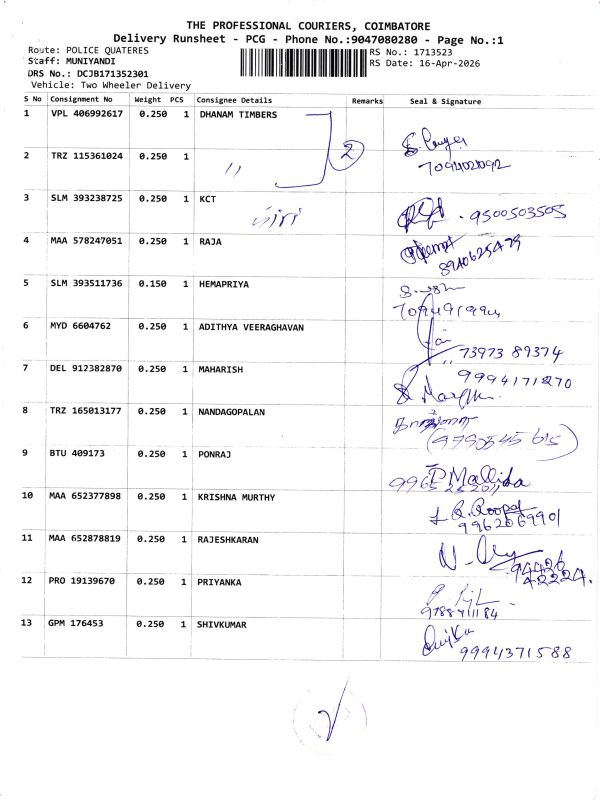 THE PROFESSIONAL COURIERS, COIMBATORE
Delivery Runsheet - PCG - Phone No.:9047080280 - Page No.:1
Route: POLICE QUATERES
Staff: MUNIYANDI
DRS No.: DCJB171352301
Vehicle: Two Wheeler Delivery
RS No.: 1713523
RS Date: 16-Apr-2026
S No Consignment No Weight PCS Consignee Details Remarks Seal & Signature
1 VPL 406992617 0.250 1 DHANAM TIMBERS
2 TRZ 115361024 0.250 1 11 2
7094021092
3 SLM 393238725 0.250 1 KCT
9500503505
4 MAA 578247051 0.250 1 RAJA
8940625479
5 SLM 393511736 0.150 1 HEMAPRIYA
6 MYD 6604762 0.250 1 ADITHYA VEERAGHAVAN
73973 89374
7 DEL 912382870 0.250 1 MAHARISH 9994171270
8 TRZ 165013177 0.250 1 NANDAGOPALAN
(9790545 615)
9 BTU 409173 0.250 1 PONRAJ
P Mallika
10 MAA 652377898 0.250 1 KRISHNA MURTHY
9962069901
11 MAA 652878819 0.250 1 RAJESHKARAN
94426
42224.
12 PRO 19139670 0.250 1 PRIYANKA
13 GPM 176453 0.250 1 SHIVKUMAR
9994371588